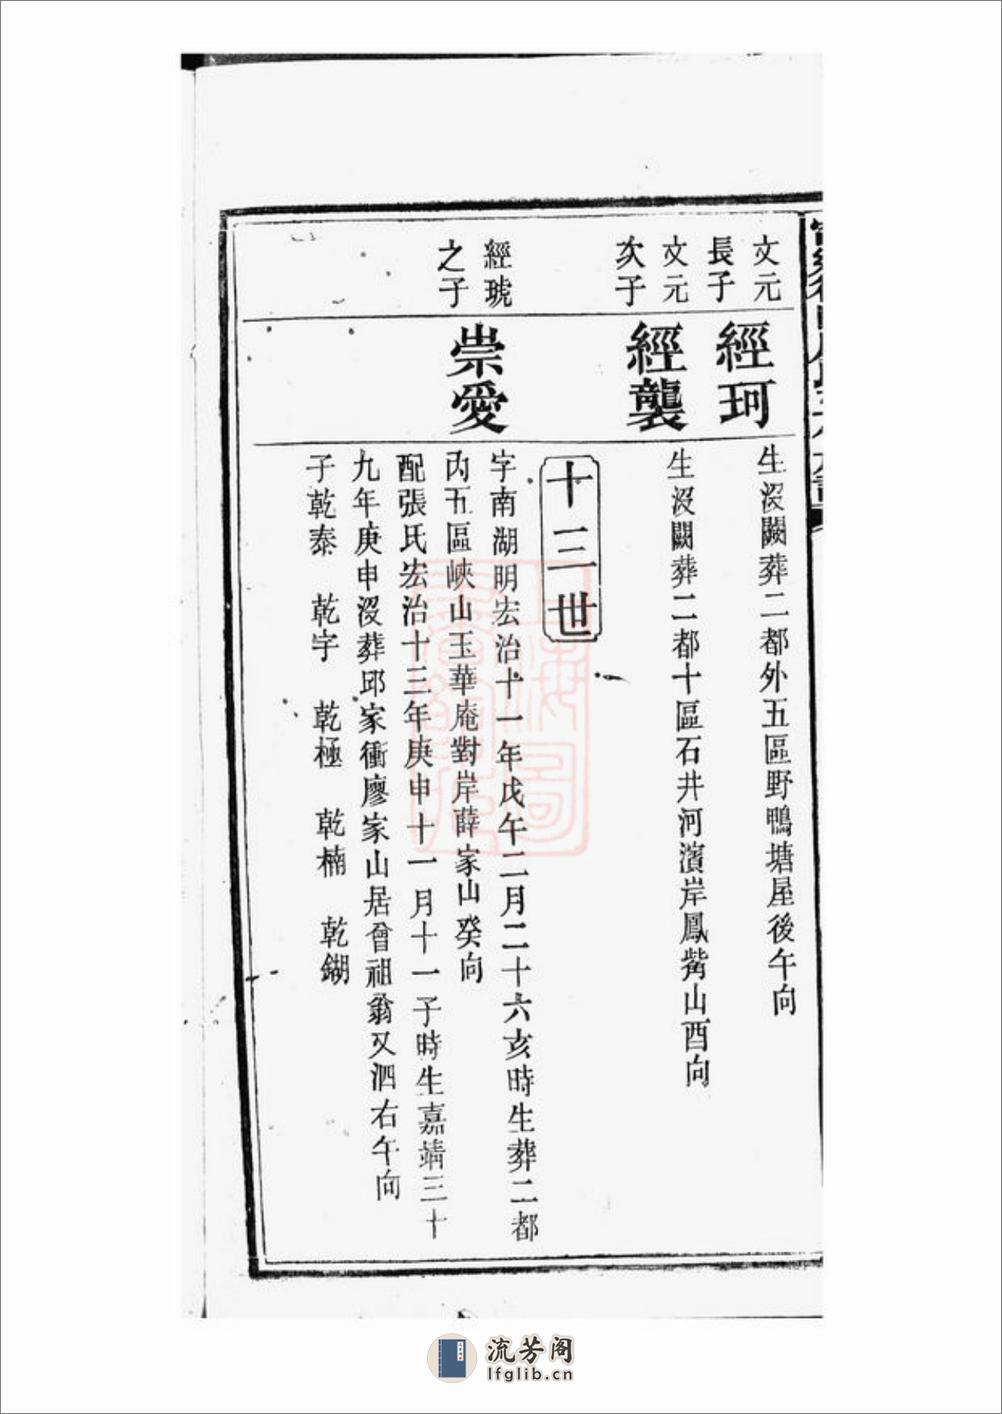 文元
長子
經珂
生沒闕葬二都外五區野鴨塘屋後午向
文元
次子
經襲
生沒闕葬二都十區石井河濱岸鳳觜山酉向
十三世
經琥
之子
崇愛
字南湖明宏治十一年戊午二月二十六亥時生葬二都
內五區峽山玉華庵對岸薛家山癸向
配張氏宏治十三年庚申十一月十一子時生嘉靖三十
九年庚申沒葬邱家衝廖家山居曾祖翁又泗右午向
子乾泰 乾宇 乾極 乾楠 乾鍸
流芳阁
lfglib.cn